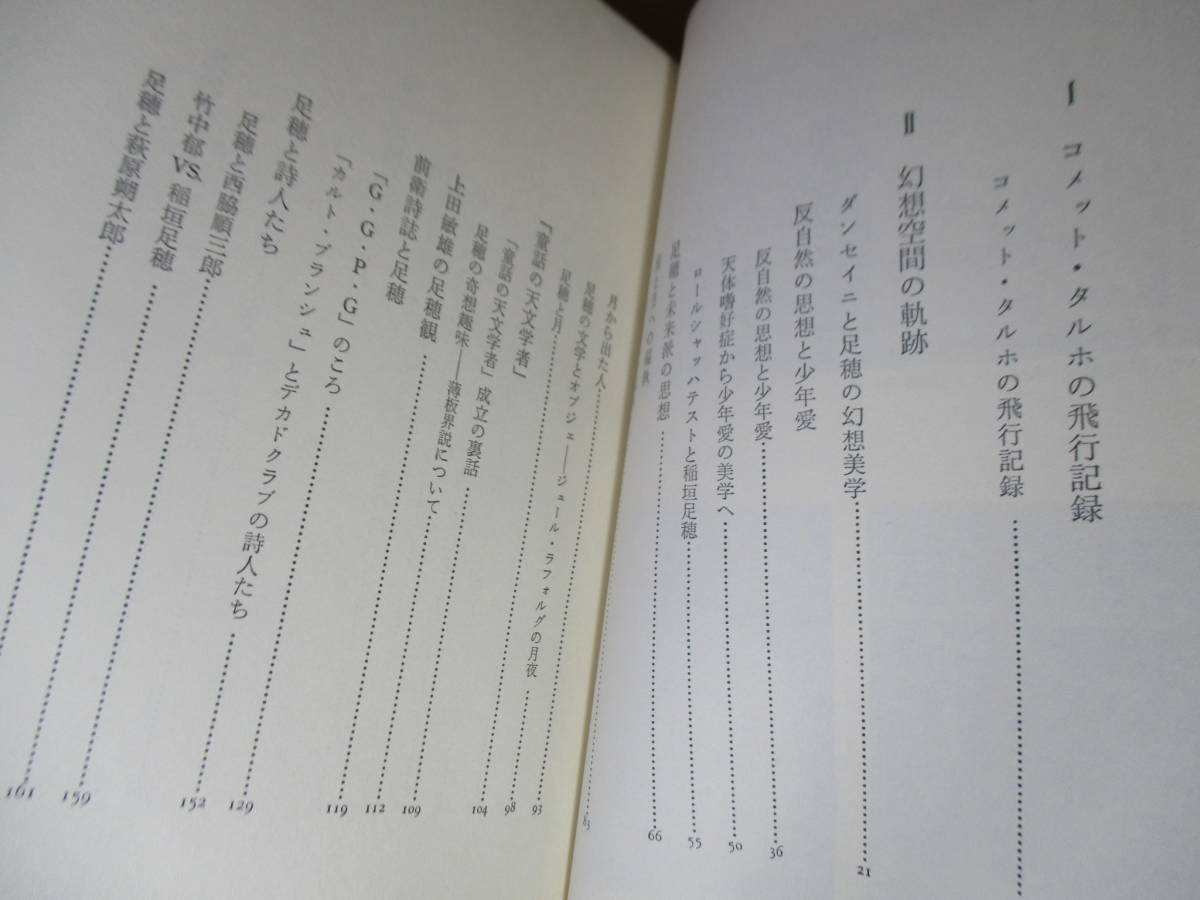 I コメット・タルホの飛行記録
コメット・タルホの飛行記録
II 幻想空間の軌跡
ダンセイニと足穂の幻想美学 21
反自然の思想と少年愛
反自然の思想と少年愛 36
天体嗜好症から少年愛の美学へ 50
ロールシャッハテストと稲垣足穂 55
足穂と未来派の思想 66
月から出た人 83
足穂の文学とオブジェ——ジュール・ラフォルグの月夜
足穂と月 93
「童話の天文学者」
「童話の天文学者」成立の裏話 98
足穂の奇想趣味——薄板界説について 104
上田敏雄の足穂観 109
前衛詩誌と足穂
「G・G・P・G」のころ 112
「カルト・ブランシュ」とデカドクラブの詩人たち 119
足穂と詩人たち
足穂と西脇順三郎 129
竹中郁 VS. 稲垣足穂 152
足穂と萩原朔太郎 159
161